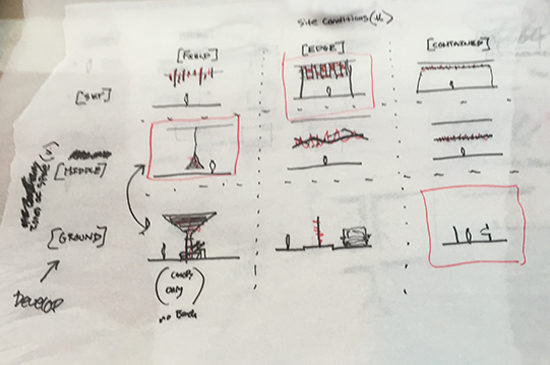 Site Conditions (x)
[FIELD] [EDGE] [CONTAINED]
[SKY]
[MIDDLE]
[GROUND]
DEVELOP
only
no